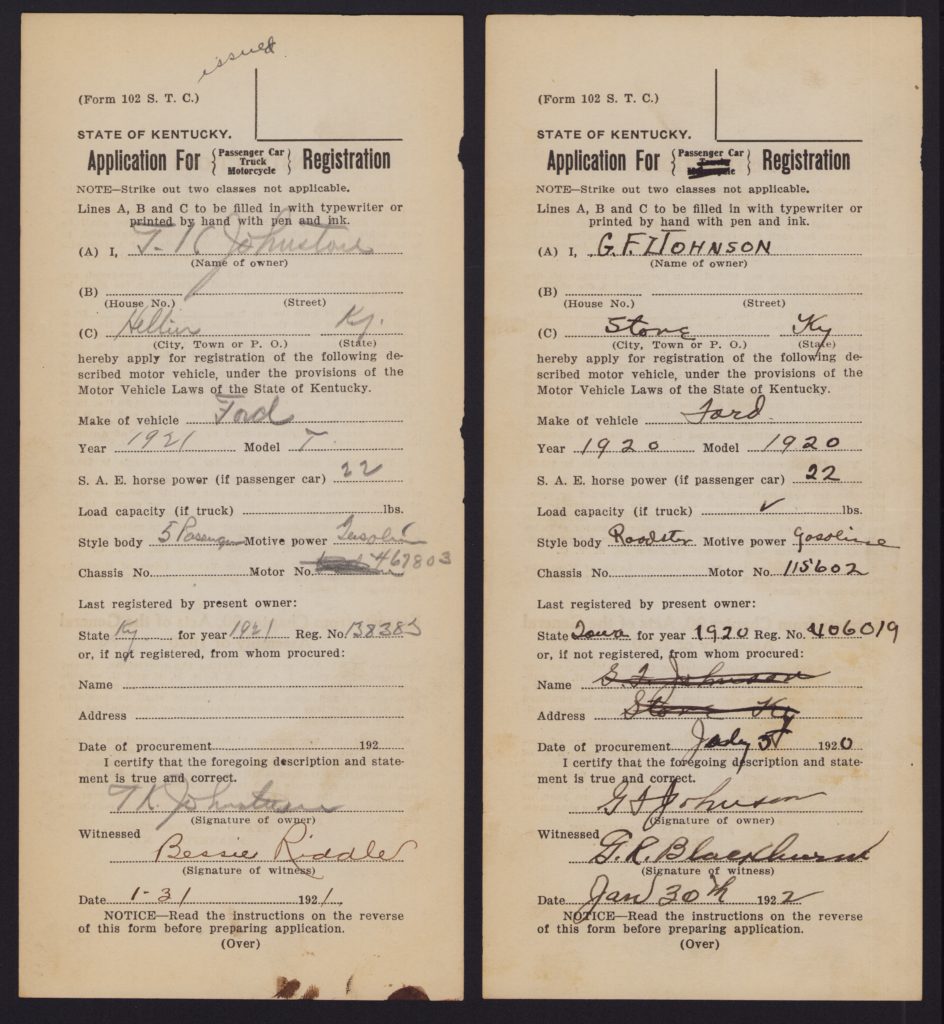 issued
(Form 102 S. T. C.)
STATE OF KENTUCKY.
Application For { Passenger Car Truck Motorcycle } Registration
NOTE—Strike out two classes not applicable.
Lines A, B and C to be filled in with typewriter or
printed by hand with pen and ink.
(A) I, T. K. Johnstone
(Name of owner)
(B)
(House No.) (Street)
(C) Ky.
(City, Town or P. O.) (State)
hereby apply for registration of the following de-
scribed motor vehicle, under the provisions of the
Motor Vehicle Laws of the State of Kentucky.
Make of vehicle Ford
Year 1921 Model T
S. A. E. horse power (if passenger car) 22
Load capacity (if truck) lbs.
Style body 5 Passenger Motive power Gasolin
Chassis No. Motor No. 467803
Last registered by present owner:
State Ky for year 1921 Reg. No. 138383
or, if not registered, from whom procured:
Name
Address
Date of procurement 192
I certify that the foregoing description and state-
ment is true and correct.
T K. Johnstone
(Signature of owner)
Witnessed
Bessie Riddle
(Signature of witness)
Date 1-31 1921
NOTICE—Read the instructions on the reverse
of this form before preparing application.
(Over)
(Form 102 S. T. C.)
STATE OF KENTUCKY.
Application For { Passenger Car Truck Motorcycle } Registration
NOTE—Strike out two classes not applicable.
Lines A, B and C to be filled in with typewriter or
printed by hand with pen and ink.
(A) I, G. F. JOHNSON
(Name of owner)
(B)
(House No.) (Street)
(C) Stone Ky
(City, Town or P. O.) (State)
hereby apply for registration of the following de-
scribed motor vehicle, under the provisions of the
Motor Vehicle Laws of the State of Kentucky.
Make of vehicle Ford
Year 1920 Model 1920
S. A. E. horse power (if passenger car) 22
Load capacity (if truck) ✓ lbs.
Style body Roadster Motive power Gasoline
Chassis No. Motor No. 115602
Last registered by present owner:
State Iowa for year 1920 Reg. No. 406019
or, if not registered, from whom procured:
Name G. F. Johnson
Address Stone Ky
Date of procurement 5 1920
I certify that the foregoing description and state-
ment is true and correct.
G F Johnson
(Signature of owner)
Witnessed
G. R. Blackburn
(Signature of witness)
Date Jan 30th 1922
NOTICE—Read the instructions on the reverse
of this form before preparing application.
(Over)